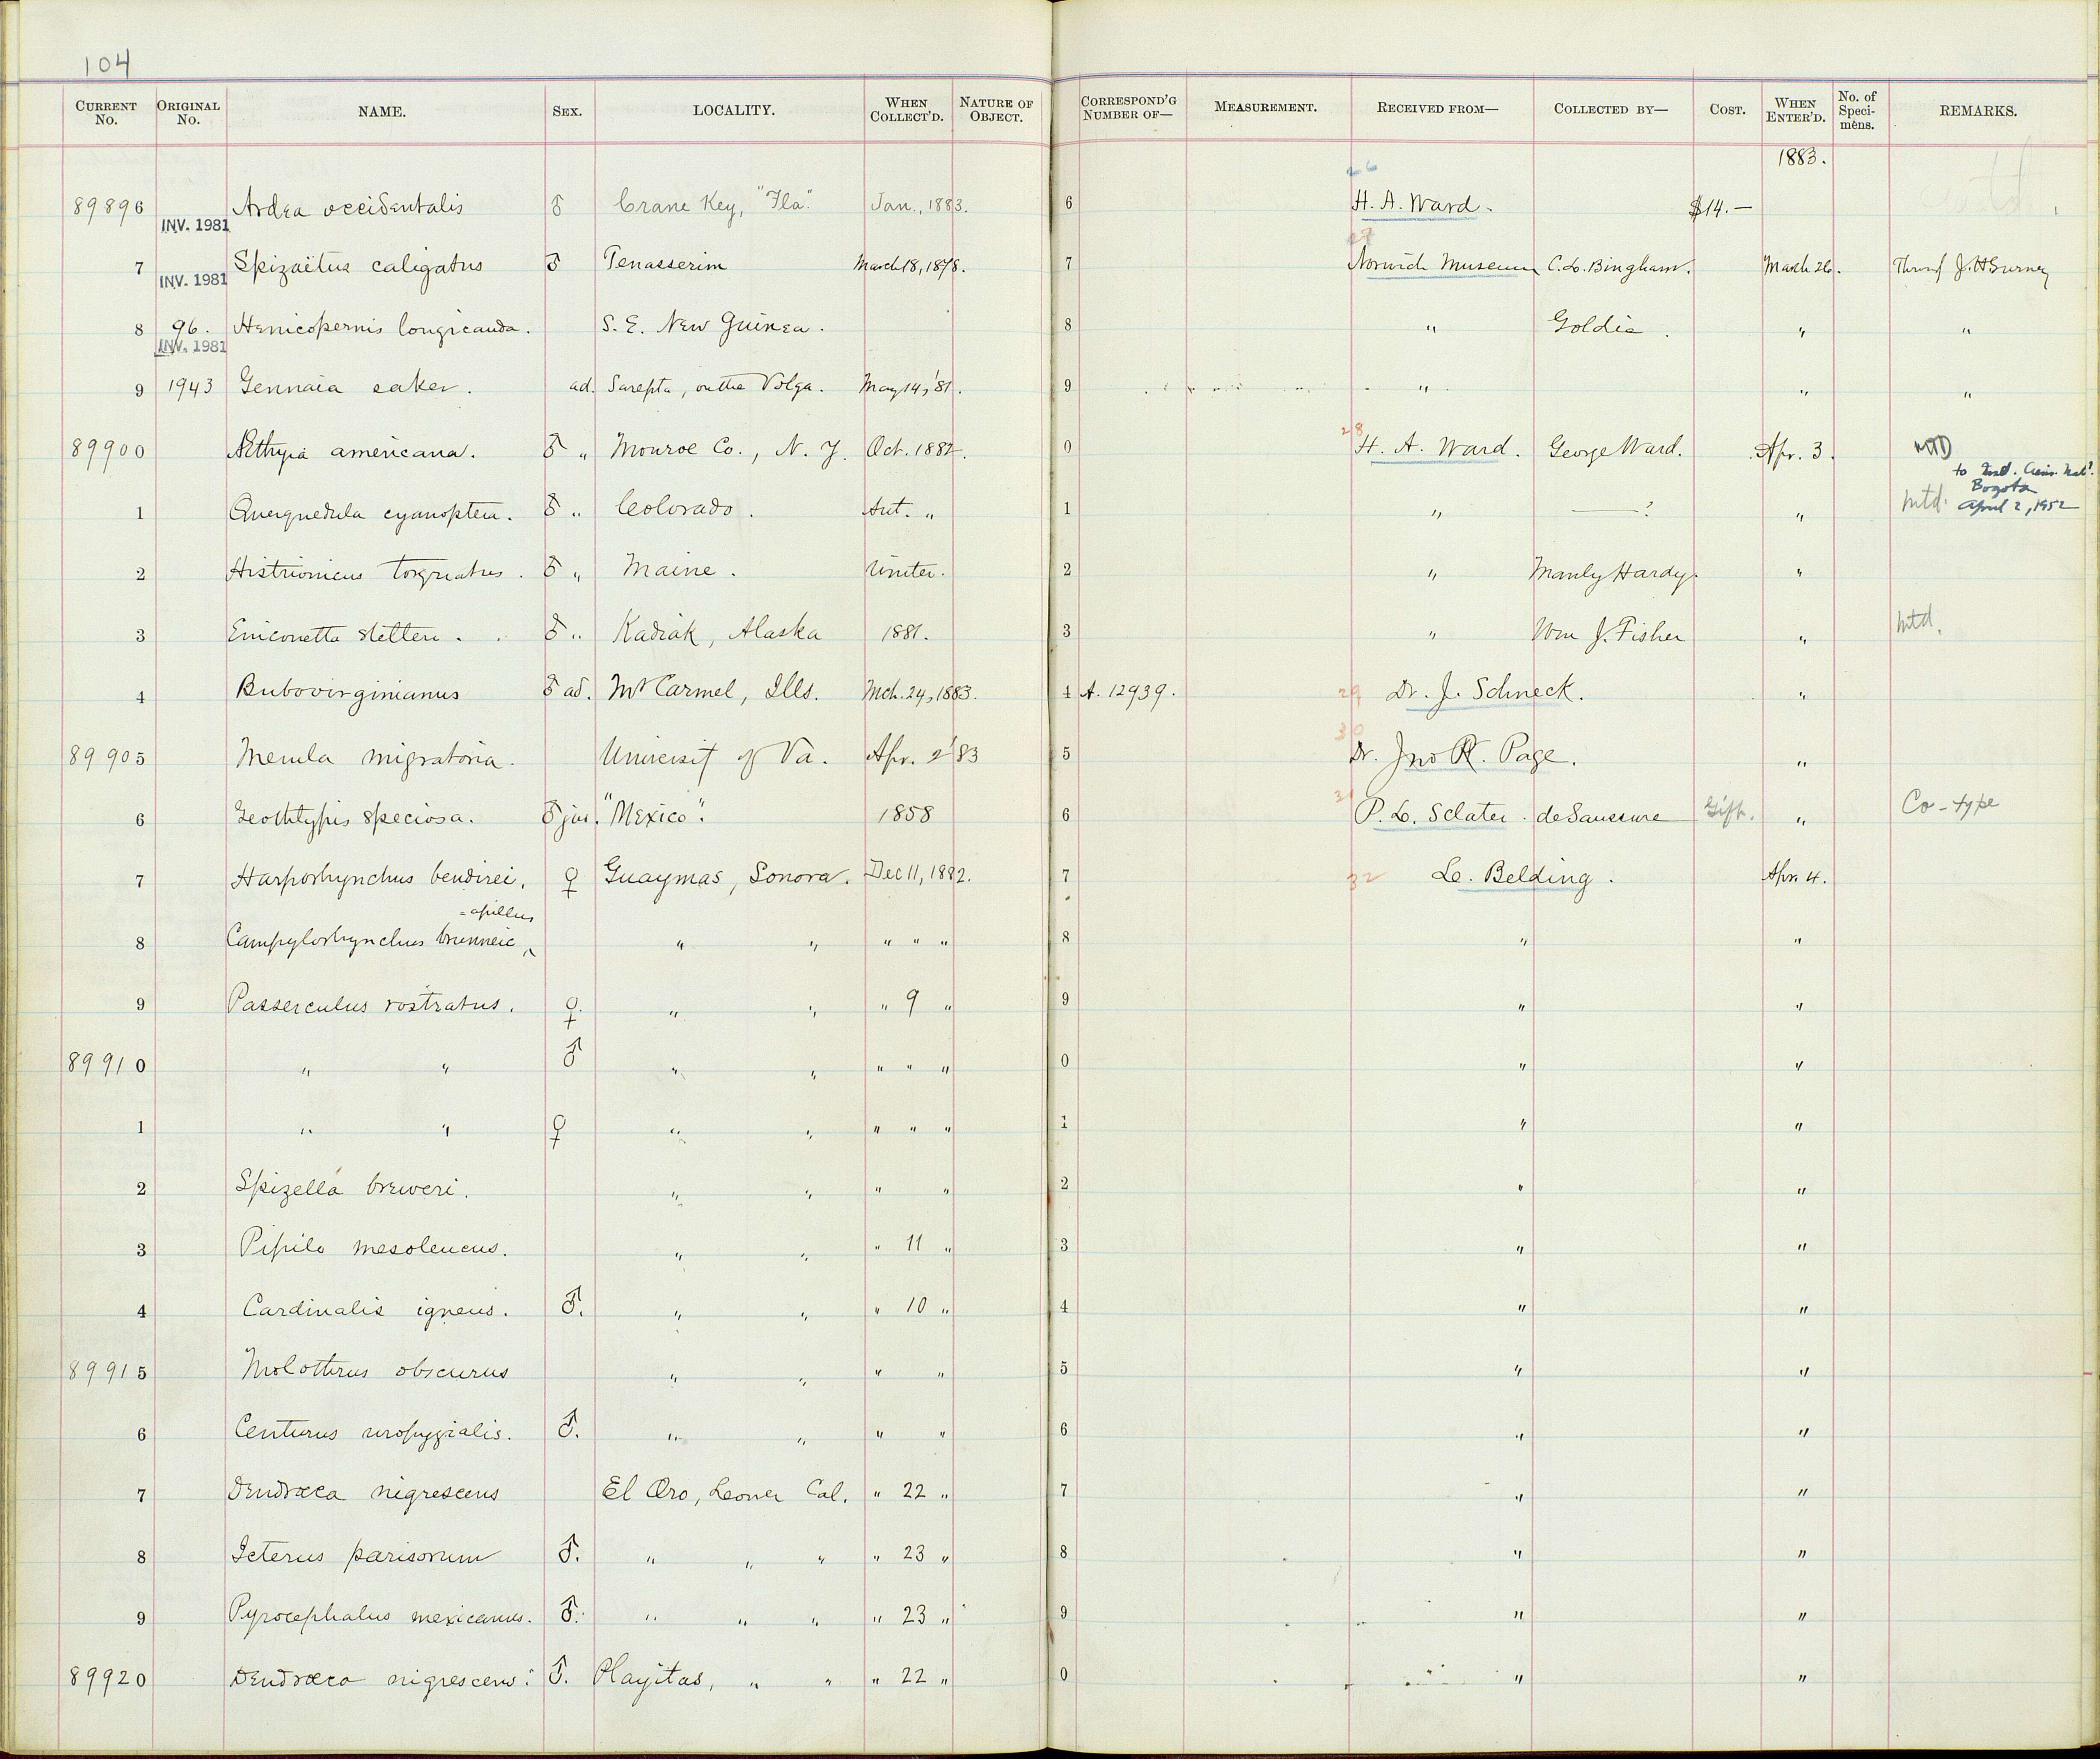 104
CURRENT No. ORIGINAL No. NAME. SEX. LOCALITY. WHEN COLLECT'D. NATURE OF OBJECT. CORRESPOND'G NUMBER OF— MEASUREMENT. RECEIVED FROM— COLLECTED BY— COST. WHEN ENTER'D. No. of Specimens. REMARKS.
26 1883.
89896 INV. 1981 Ardea occidentalis ♂ Crane Key, "Fla." Jan., 1883. 6 H. A. Ward. $14.—
27
7 INV. 1981 Spizaëtus caligatus ♂ Tenasserim March 18, 1878. 7 Norwich Museum C. T. Bingham. March 26. Through J. H. Gurney
8 96. INV. 1981 Henicopernis longicauda. S. E. New Guinea. 8 " Goldie. " "
9 1943 Gennaia saker. ad. Sarepta, on the Volga. May 14, '81. 9 " " "
89900 Æthyia americana. ♂ " Monroe Co., N. Y. Oct. 1882. 0 28 H. A. Ward. George Ward. Apr. 3. MTD
to Inst. Cien. Nat'l. Bogota April 2, 1952
1 Querquedula cyanoptera. ♂ " Colorado. Aut. " 1 " —? " Mtd.
2 Histrionicus torquatus. ♂ " Maine. Winter. 2 " Manly Hardy. "
3 Eniconetta stelleri. ♂ " Kadiak, Alaska 1881. 3 " Wm J. Fisher " Mtd.
4 Bubo virginianus ♂ ad. Mt Carmel, Ills. Mch. 24, 1883. 4 A. 12939. 29 Dr. J. Schneck. "
30
89905 Merula migratoria. Universit of Va. Apr. 2 '83 5 Dr. Jno R. Page. "
6 Geothlypis speciosa. ♂ juv. "Mexico". 1858 6 31 P. L. Sclater. deSaussure Gift. " Co-type
7 Harporhynchus bendirei. ♀ Guaymas, Sonora. Dec 11, 1882. 7 32 L. Belding. Apr. 4.
-apillus
8 Campylorhynchus brunneic^ " " " " " 8 " "
9 Passerculus rostratus. ♀ " " " 9 " 9 " "
89910 " " ♂ " " " " " 0 " "
1 " " ♀ " " " " " 1 " "
2 Spizella breweri. " " " " 2 " "
3 Pipilo mesoleucus. " " " 11 " 3 " "
4 Cardinalis igneus. ♂. " " " 10 " 4 " "
89915 Molothrus obscurus " " " " 5 " "
6 Centurus uropygialis. ♂. " " " " 6 " "
7 Dendrœca nigrescens El Oro, Lower Cal. " 22 " 7 " "
8 Icterus parisorum ♂. " " " " 23 " 8 " "
9 Pyrocephalus mexicanus. ♂. " " " " 23 " 9 " "
89920 Dendrœca nigrescens. ♂. Playitas, " " " 22 " 0 " "